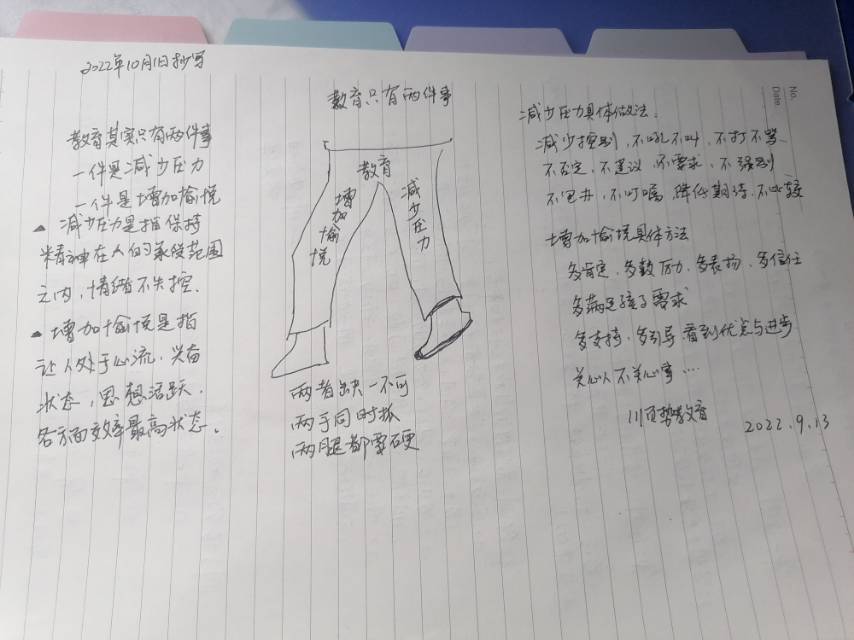 2022年10月1日抄写
教育其实只有两件事
一件是减少压力
一件是增加愉悦
▲ 减少压力是指保持
精神在人的承受范围
之内，情绪不失控.
▲ 增加愉悦是指
让人处于心流，兴奋
状态，思想活跃.
各方面效率最高状态。
教育只有两件事
教育
增加愉悦
减少压力
两者缺一不可
两手同时抓
两腿都要硬
减少压力具体做法.
减少控制，不吼不叫，不打不骂
不否定，不建议，不要求，不强制
不包办，不叮嘱，降低期待，不比较
增加愉悦具体方法
多肯定，多鼓励，多表扬，多信任
多满足孩子需求
多支持，多引导，看到优点与进步
关心人不关心事…
顺势教育
2022.9.13
No.
Date